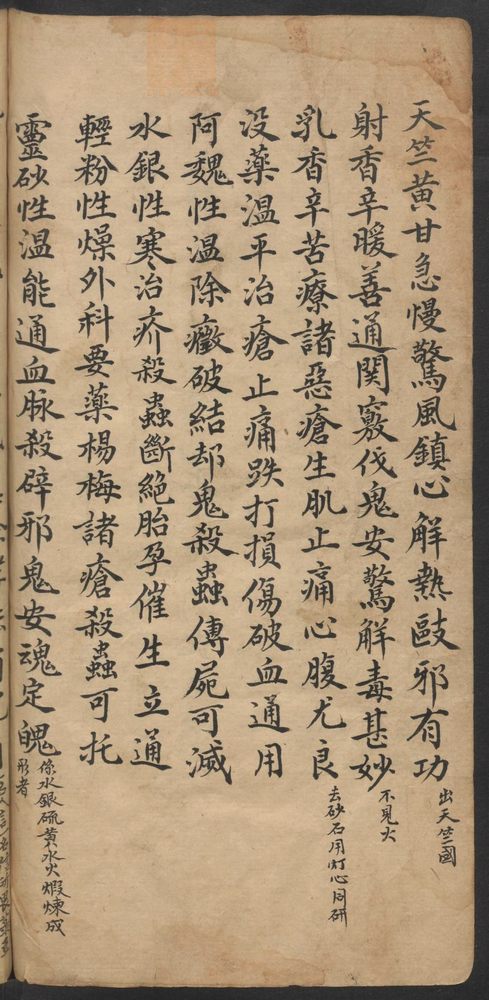 天竺黃甘急慢驚風鎮心解熱敺邪有功 出天竺國
射香辛暖善通関竅伐鬼安驚解毒甚妙 不見火
乳香辛苦療諸惡瘡生肌止痛心腹尤良 去砂石用灯心同研
没藥温平治瘡止痛跌打損傷破血通用
阿魏性温除癥破結却鬼殺蟲傳屍可滅
水銀性寒治疥殺蟲斷絶胎孕催生立通
輕粉性燥外科要藥楊梅諸瘡殺蟲可托
靈砂性温能通血脉殺辟邪鬼安魂定魄 係水銀硫黄水火煆煉成
形者